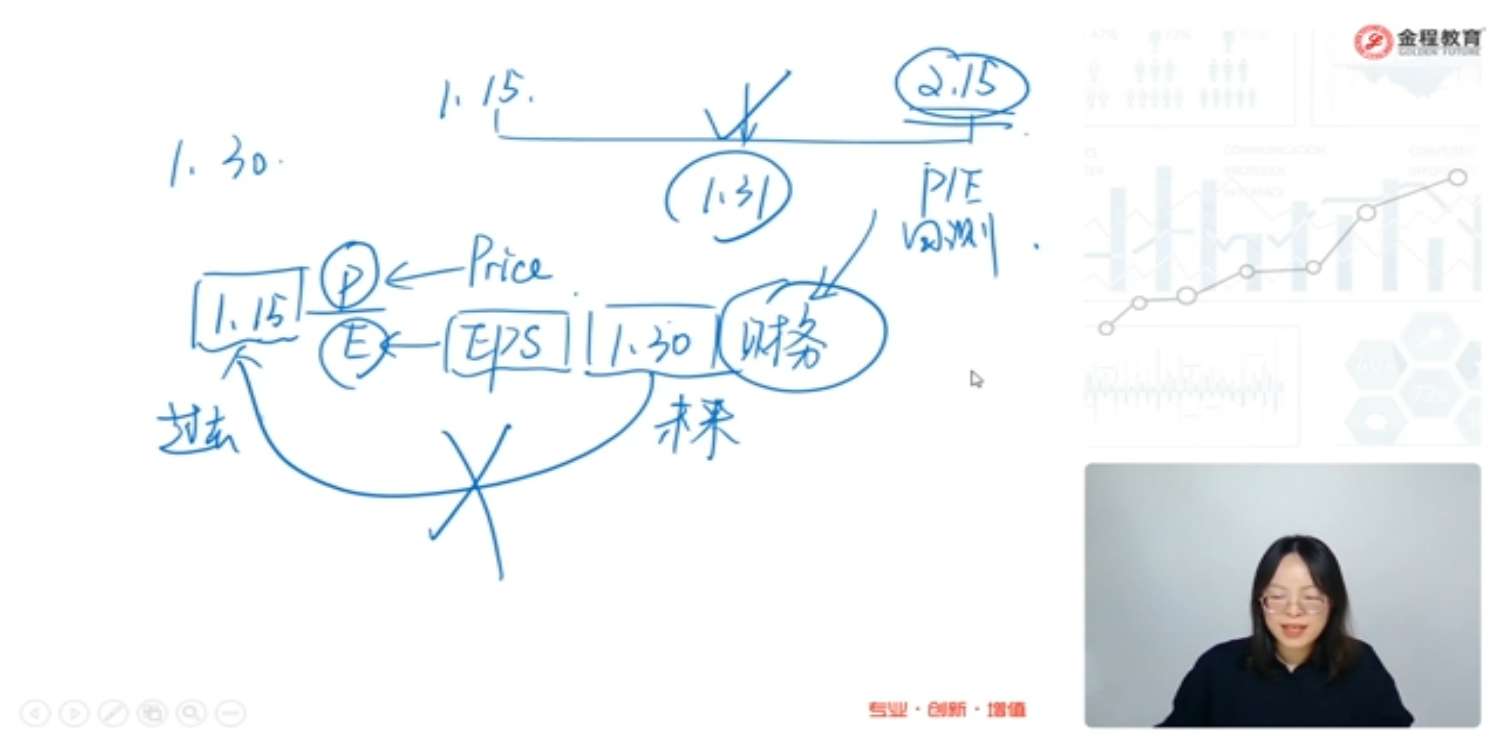 金程教育
GOLDEN FUTURE
1.15.
2.15
1.30.
1.31
P/E
回测.
1.15
P
Price
E
EPS
1.30
财务
过去
未来
专业·创新·增值